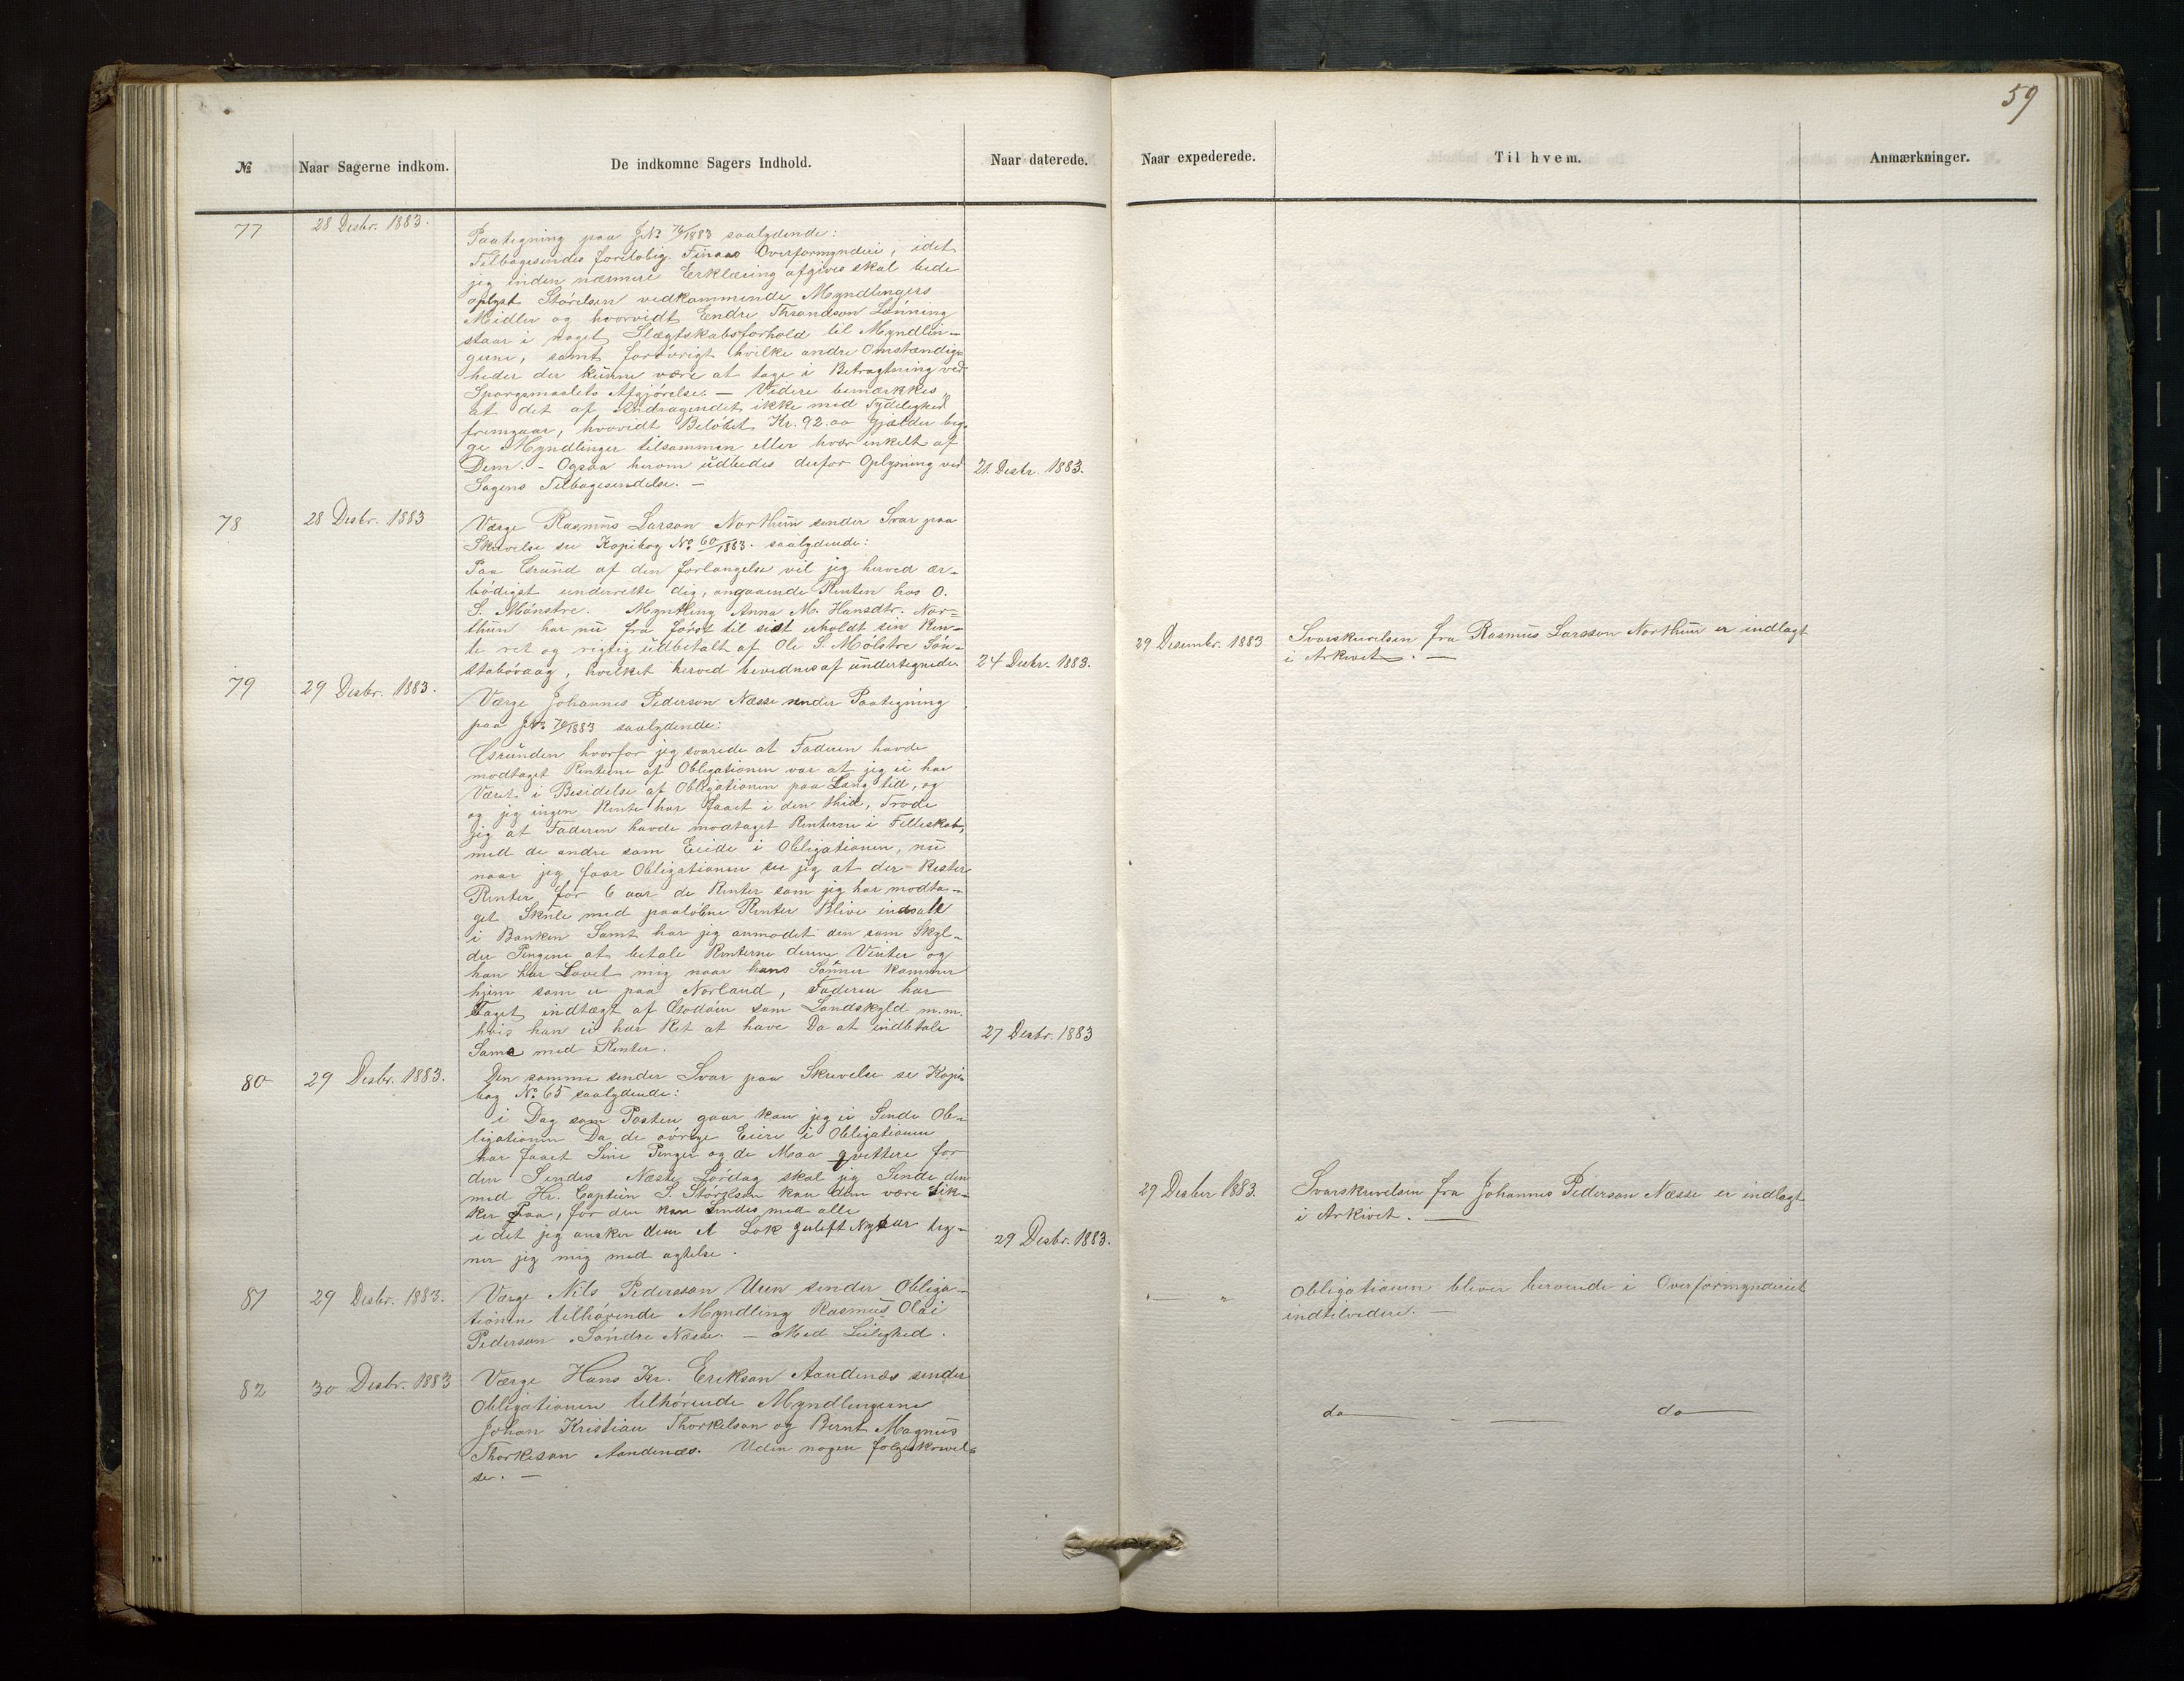 59
№
Naar Sagerne indkom.
De indkomne Sagers Indhold.
Naar daterede.
Naar expederede.
Til hvem.
Anmærkninger.
77
28 Desbr. 1883.
Paategning paa JN: 76/1883 saalydende:
Tilbagesendes foreløbig Finaas Overformynderi, idet
jeg inden nærmere Erklæring afgives skal bede
oplyst Størelsen vedkommende Myndlingers
Midler og hvorvidt Endre Thrandson Lønning
staar i noget Slægtskabsforhold til Myndlin-
gene, samt forøvrigt hvilke andre Omstændig-
heder der kunne være at tage i Betragtning ved
Spørgsmaalets Afgjørelse. — Videre bemærkkes
at det af Andragendet ikke med Tydelighed
fremgaar, hvorvidt Beløbet Kr. 92.00 gjælder beg-
ge Myndlinger tilsammen eller hver enkelt af
Dem. - Ogsaa herom udbedes derfor Oplysning ved
Sagens Tilbagesendelse. —
21. Desbr. 1883.
78
28 Desbr. 1883
Værge Rasmus Larson Northun sender Svar paa
Skrivelse see Kopibog No 60/1883. saalydende:
Paa Grund af den forlangelse vil jeg herved ær-
bødigst underrette dig, angaaende Renten hos O.
S. Mønstre. Myndling Anna M. Hansdtr. Nor-
thun har nu fra først til sidst erholdt sin Ren-
te ret og rigtig udbetalt af Ole S. Mølstre Søn-
stabøvaag, hvilket herved bevidnes af undertegnede
24 Desbr. 1883.
29 Desember 1883
Svarskrivelsen fra Rasmus Larsson Northun er indlagt
i Arkivet. —
79
29 Desbr. 1883.
Værge Johannes Pederson Næsse sender Paategning
paa JN: 74/1883 saalydende:
Grunden hvorfor jeg svarede at Faderen havde
modtaget Renterne af Obligationen var at jeg ei har
Været i Besidelse af Obligationen paa Lang tid, og
og jeg ingen Rente har faaet i den thid, Trode
jeg at Faderen havde modtaget Renterne i Felleskab,
med de andre som Eiede i Obligationen, nu
naar jeg faar Obligationen ser jeg at der Rester
Renter for 6 aar de Renter som jeg har modta-
get Skule med paaløbne Renter Blive indsatt
i Banken Samt har jeg anmodet den som Skyl-
der Pengene at betale Renterne denne Vinter og
han har Lovet mig naar hans Sønner kommer
hjem som er paa Norland, Faderen har
Taget indtægt af Godøm som Landskyld m.m.
hvis han ei har Ret at have Da at indbetale
Same med Renter.
27 Desbr. 1883
80
29 Desbr. 1883.
Den samme sender Svar paa Skrivelse se Kopi-
bog No 65 saalydende:
i Dag som Posten gaar kan jeg ei Sende Ob-
ligationen Da de øvrige Eiere i Obligationen
har faaet Sine Penger og de Maa qvittere for
den Sendes Næste Lørdag skal jeg Sende den
med Hr. Captein S. Størksen kan dem være Sik-
ker Paa, for den kan Sendes med alle
i det jeg ønsker dem et Lok Nyaar teg-
ner jeg mig med agtelse.
29 Desbr. 1883.
29 Desber 1883.
Svarskrivelsen fra Johannes Pederson Næsse er indlagt
i Arkivet. —
81
29 Desbr. 1883.
Værge Nils Pedersson Uren sender Obliga-
tionen tilhørende Myndling Rasmus Olai
Pederson Søndre Næsse. — Med Leilighed.
" — "
Obligationen bliver beroende i Overformynderiet
indtilvidere. —
82
30 Desbr. 1883
Værge Hans Kr. Erikson Aandenes sender
Obligationen tilhørende Myndlingerne
Johan Kristian Thorkelson og Bernt Magnus
Thorkeson Aandenæs. Uden nogen følgeskrivel-
se. —
do — - — do —